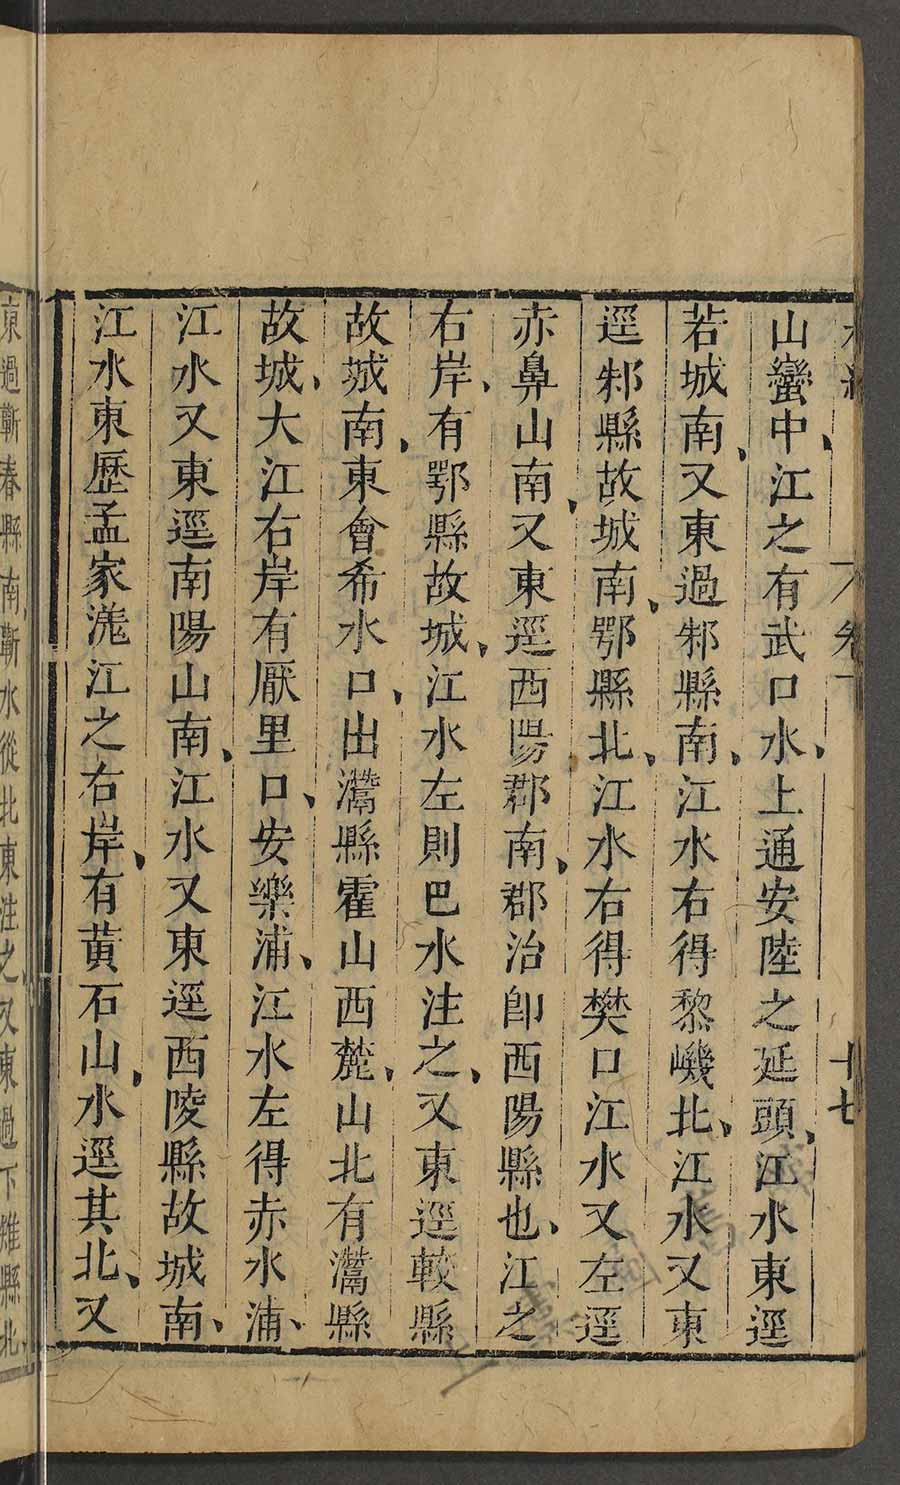 水經 卷下 十七
山蠻中、江之有武口水、上通安陸之延頭、江水東逕
若城南、又東過邾縣南、江水右得黎嶬北、江水又東
逕邾縣故城南、鄂縣北、江水右得樊口江水又左逕
赤鼻山南、又東逕西陽郡南、郡治卽西陽縣也、江之
右岸、有鄂縣故城、江水左則巴水注之、又東逕軑縣
故城南、東會希水口、出灊縣霍山西麓、山北有灊縣
故城、大江右岸有厭里口、安樂浦、江水左得赤水浦、
江水又東逕南陽山南、江水又東逕西陵縣故城南、
江水東歷孟家溠江之右岸、有黃石山、水逕其北、又
東過蘄春縣南、蘄水從北東注之、又東過下雉縣北、